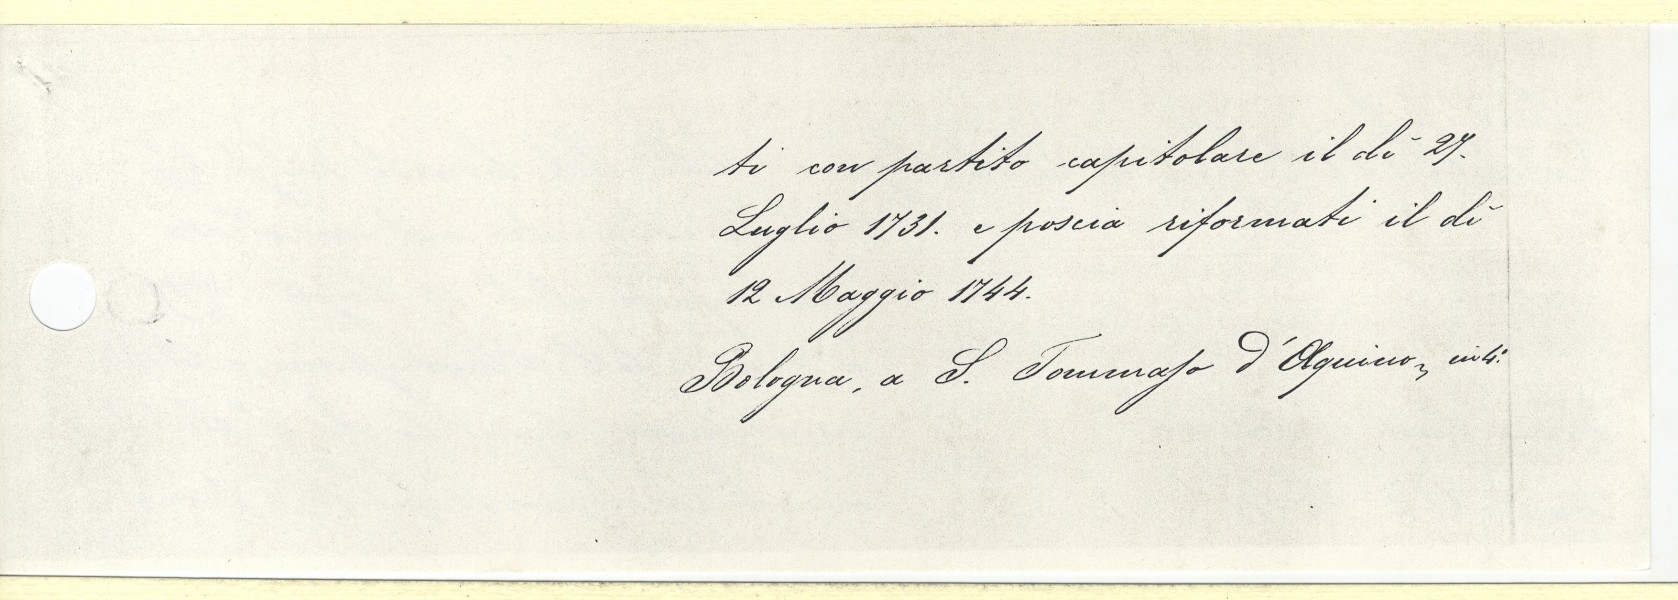 ti con partito capitolare il dì 27.
Luglio 1731. e poscia riformati il dì
12 Maggio 1744.
Bologna, a S. Tommaso d'Aquino, in 4.º